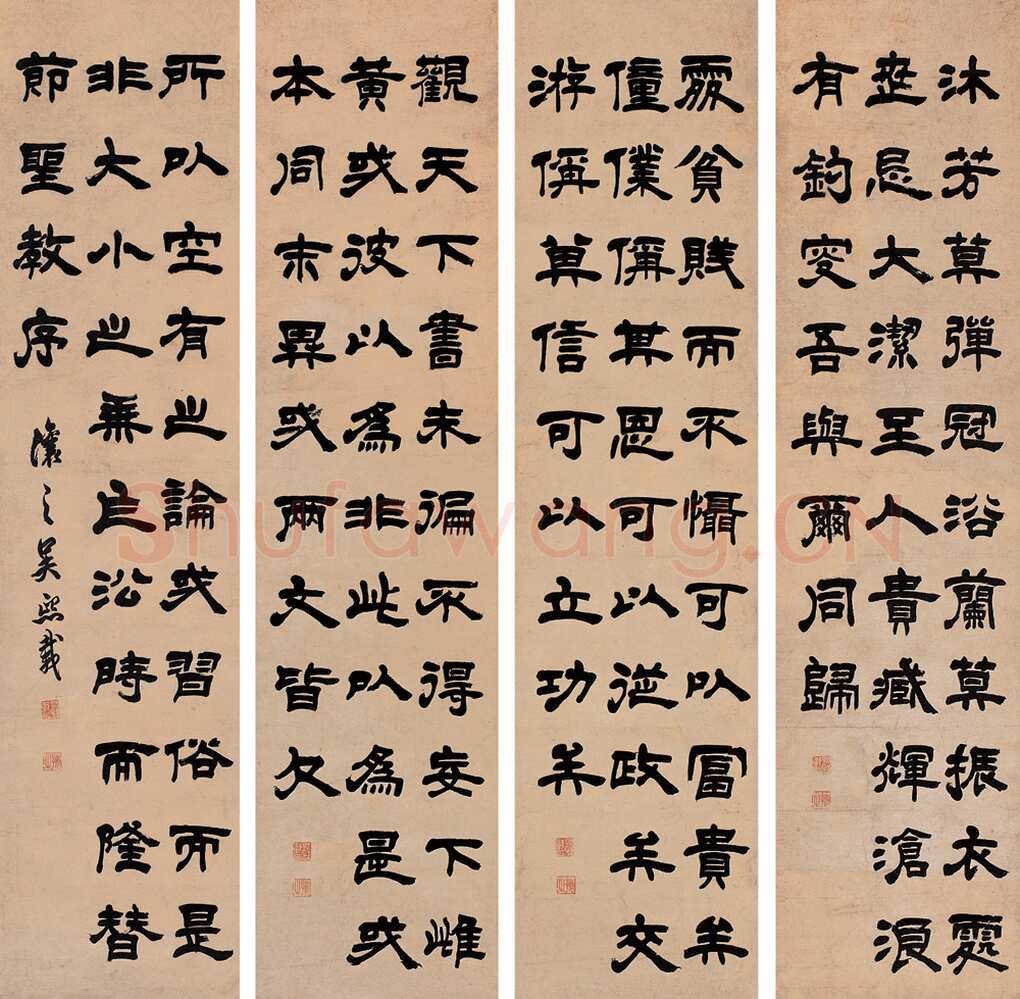 沐芳莫彈冠浴蘭莫振衣處
世忌大潔至人貴藏輝滄浪
有釣叟吾與爾同歸
處貧賤而不懾可以富貴矣
僮僕偁其恩可以從政矣交
游偁其信可以立功矣
觀天下書未徧不得妄下雌
黃或彼以為非此以為是或
本同末異或兩文皆欠
所以空有之論或習俗而是
非大小之乘乍沿時而隆替
節聖教序
讓之吳熙載
Shufawang.CN